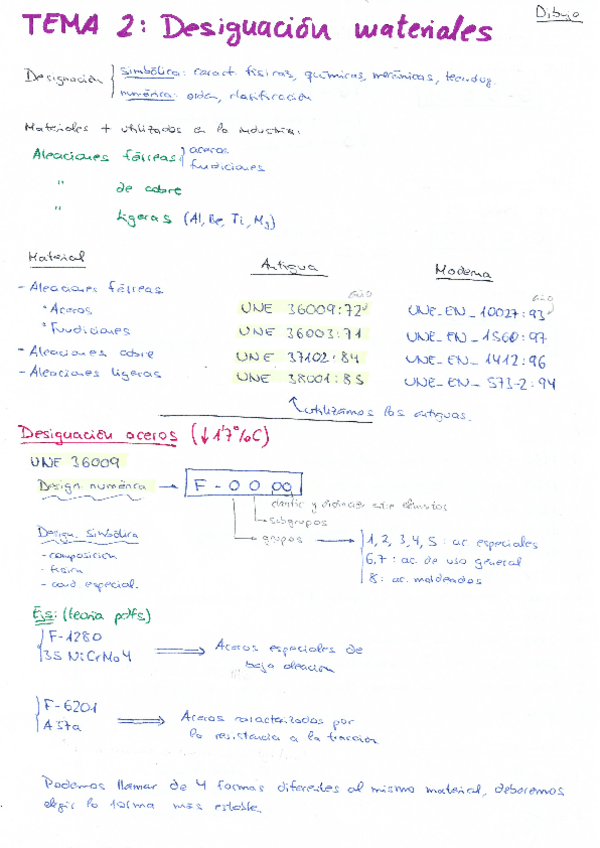 Dibujo
TEMA 2: Designación materiales
Designación simbólica: caract. físicas, químicas, mecánicas, tecnolog.
numérica: orden, clasificación
Materiales + utilizados en la industria:
Aleaciones férreas aceros
fundiciones
" de cobre
" ligeras (Al, Be, Ti, Mg)
Material Antigua Moderna
- Aleaciones férreas año año
· Aceros UNE 36009:72 UNE-EN-10027:93
· Fundiciones UNE 36003:71 UNE-EN-1560:97
- Aleaciones cobre UNE 37102:84 UNE-EN-1412:96
- Aleaciones ligeras UNE 38001:85 UNE-EN-573-2:94
utilizamos las antiguas.
Designación aceros (↓1'7%C)
UNE 36009
Design. numérica → F-0000
clasific y distinción entre elementos
subgrupos
grupos → 1, 2, 3, 4, 5: ac. especiales
6, 7: ac. de uso general
8: ac. moldeados
Design. Simbólica
- composición
- física
- cond. especial.
Ejs: (teoría pdfs)
F-1280
35 NiCrMo4 ⇒ Aceros especiales de
baja aleación
F-6201
A37a ⇒ Aceros caracterizados por
la resistencia a la tracción
Podemos llamar de 4 formas diferentes al mismo material, deberemos
elegir la forma más estable.